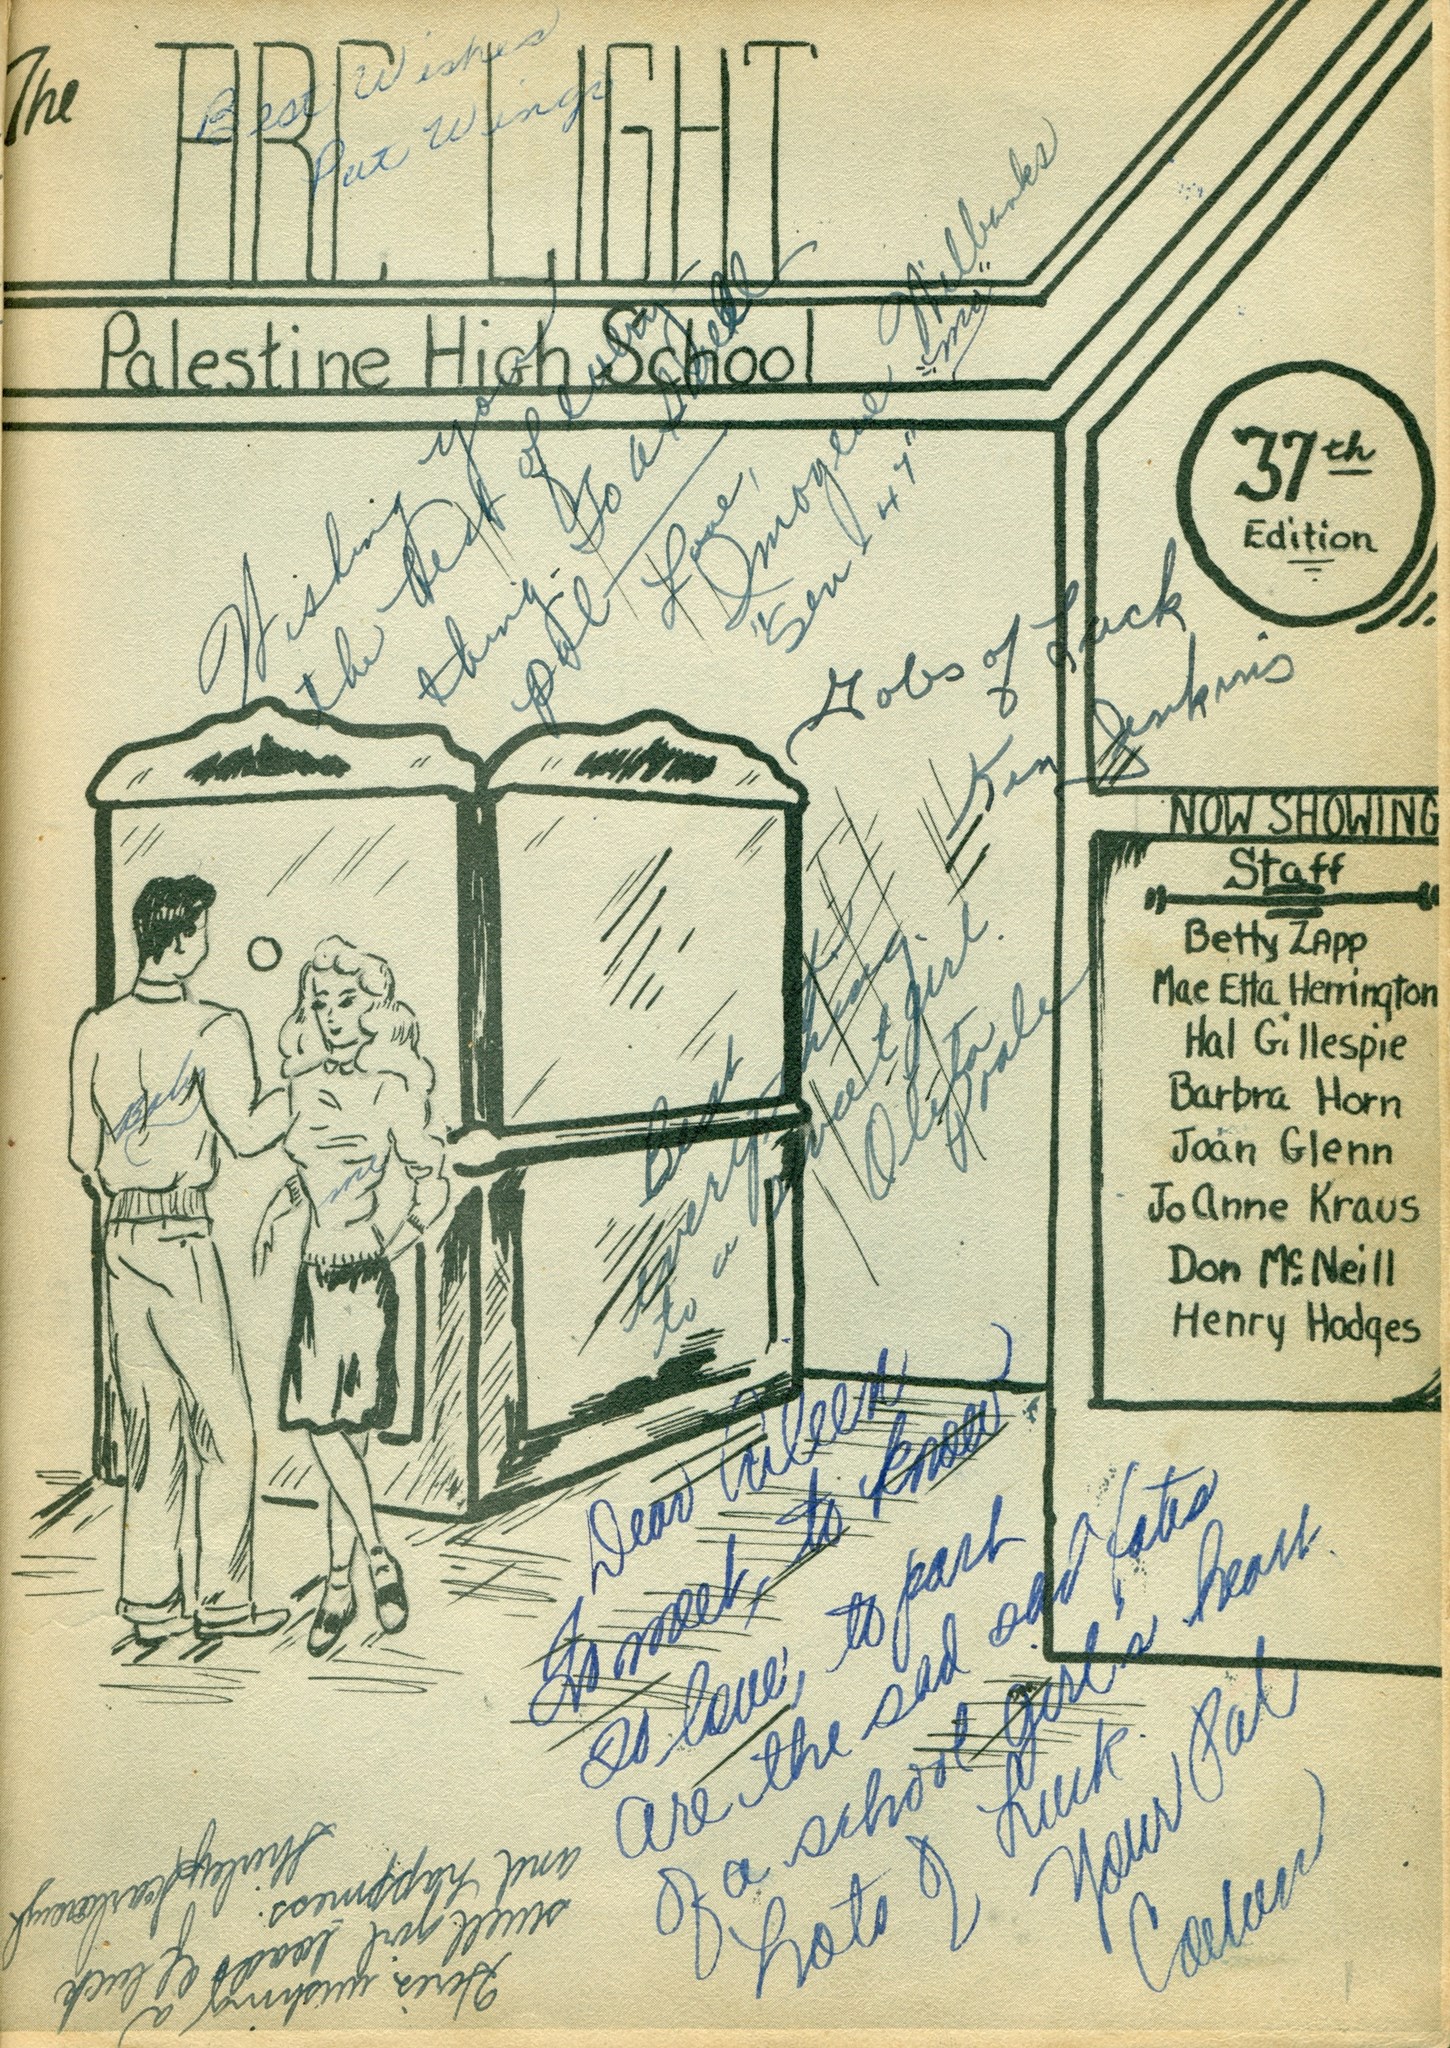 The ARC LIGHT
Best Wishes
Pat Wings
Palestine High School
Wishing you
the best of every
thing. To a swell
pal
Love,
Imogene Wilbanks
"Sen - 47"
"ma"
37th
Edition
Gobs of Luck
Ken Jenkins
NOW SHOWING
Staff
Betty Zapp
Mae Etta Herrington
Hal Gillespie
Barbra Horn
Joan Glenn
Jo Anne Kraus
Don McNeill
Henry Hodges
me
Best of
everything
to a sweet girl.
Oleta
Poole
Dear Aileen
To meet, to know
to love, to part
are the sad sad fates
of a school girl's heart.
Lots of Luck.
Your Pal
Here's wishing a
swell girl loads of luck
and happiness.
Shirley Scarborough